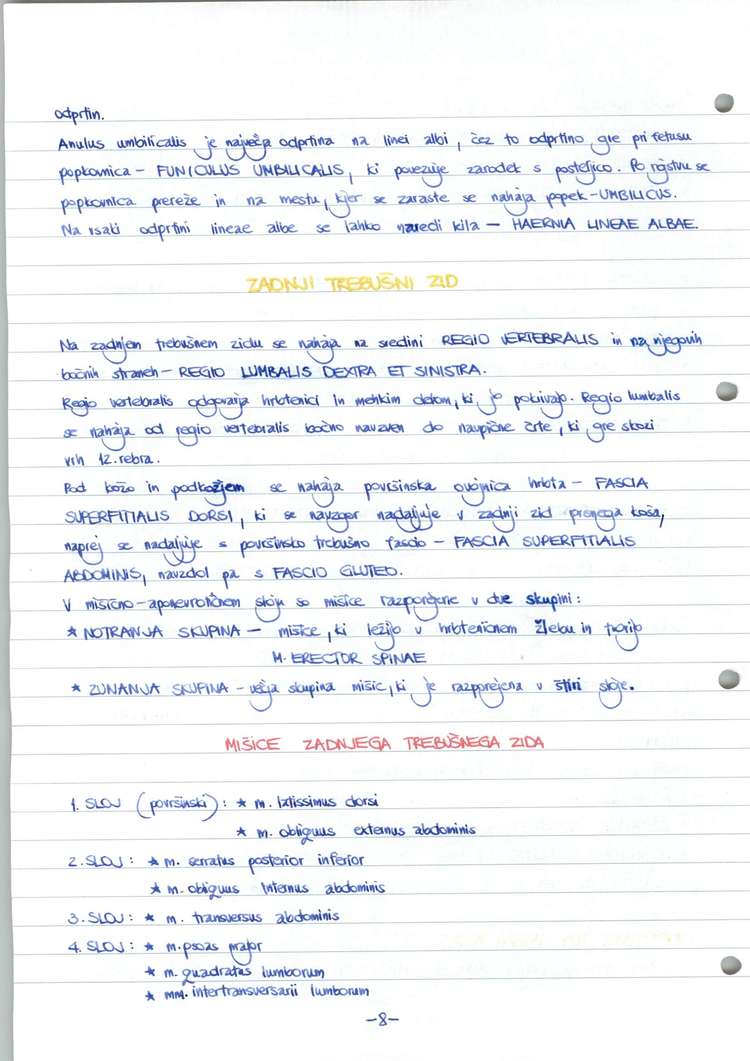 odprtin.
Anulus umbilicalis je največja odprtina na linei albi, čez to odprtino gre pri fetusu
popkovnica – FUNICULUS UMBILICALIS, ki povezuje zarodek s posteljico. Po rojstvu se
popkovnica prereže in na mestu, kjer se zaraste se nahaja popek – UMBILICUS.
Na vsaki odprtini lineae albe se lahko naredi kila – HAERNIA LINEAE ALBAE.
ZADNJI TREBUŠNI ZID
Na zadnjem trebušnem zidu se nahaja na sredini REGIO VERTEBRALIS in na njegovih
bočnih straneh – REGIO LUMBALIS DEXTRA ET SINISTRA.
Regio vertebralis odgovarja hrbtenici in mehkim delom, ki jo pokivajo. Regio lumbalis
se nahaja od regio vertebralis bočno navzven do navpične črte, ki gre skozi
vrh 12. rebra.
Pod kožo in podkožjem se nahaja površinska ovojnica hrbta – FASCIA
SUPERFITIALIS DORSI, ki se navzgor nadaljuje v zadnji zid prsnega koša,
naprej se nadaljuje s površinsko trebušno fascio – FASCIA SUPERFITIALIS
ABDOMINIS, navzdol pa s FASCIO GLUTEO.
V mišično-aponevrotičnem sloju so mišice razporejene v dve skupini:
* NOTRANJA SKUPINA – mišice, ki ležijo v hrbteničnem žlebu in tvorijo
M. ERECTOR SPINAE
* ZUNANJA SKUPINA – večja skupina mišic, ki je razporejena v štiri sloje.
MIŠICE ZADNJEGA TREBUŠNEGA ZIDA
1. SLOJ (površinski): * m. latissimus dorsi
* m. obliguus externus abdominis
2. SLOJ: * m. serratus posterior inferior
* m. obliguus internus abdominis
3. SLOJ: * m. transversus abdominis
4. SLOJ: * m. psoas major
* m. quadratus lumborum
* mm. intertransversarii lumborum
-8-